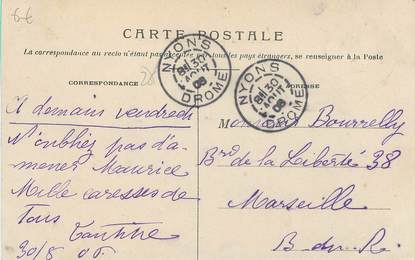 6€
CARTE POSTALE
La correspondance au recto n'étant pas acceptée par tous les pays étrangers, se renseigner à la Poste
CORRESPONDANCE
ADRESSE
NYONS
30
AOUT
08
DROME
NYONS
30
AOUT
08
DROME
A demain vendredi
N'oubliez pas d'a-
mener Maurice
Mille caresses de
Tous
30/8
Bourrelly
Brd de la Liberté 38
Marseille
B. du R.